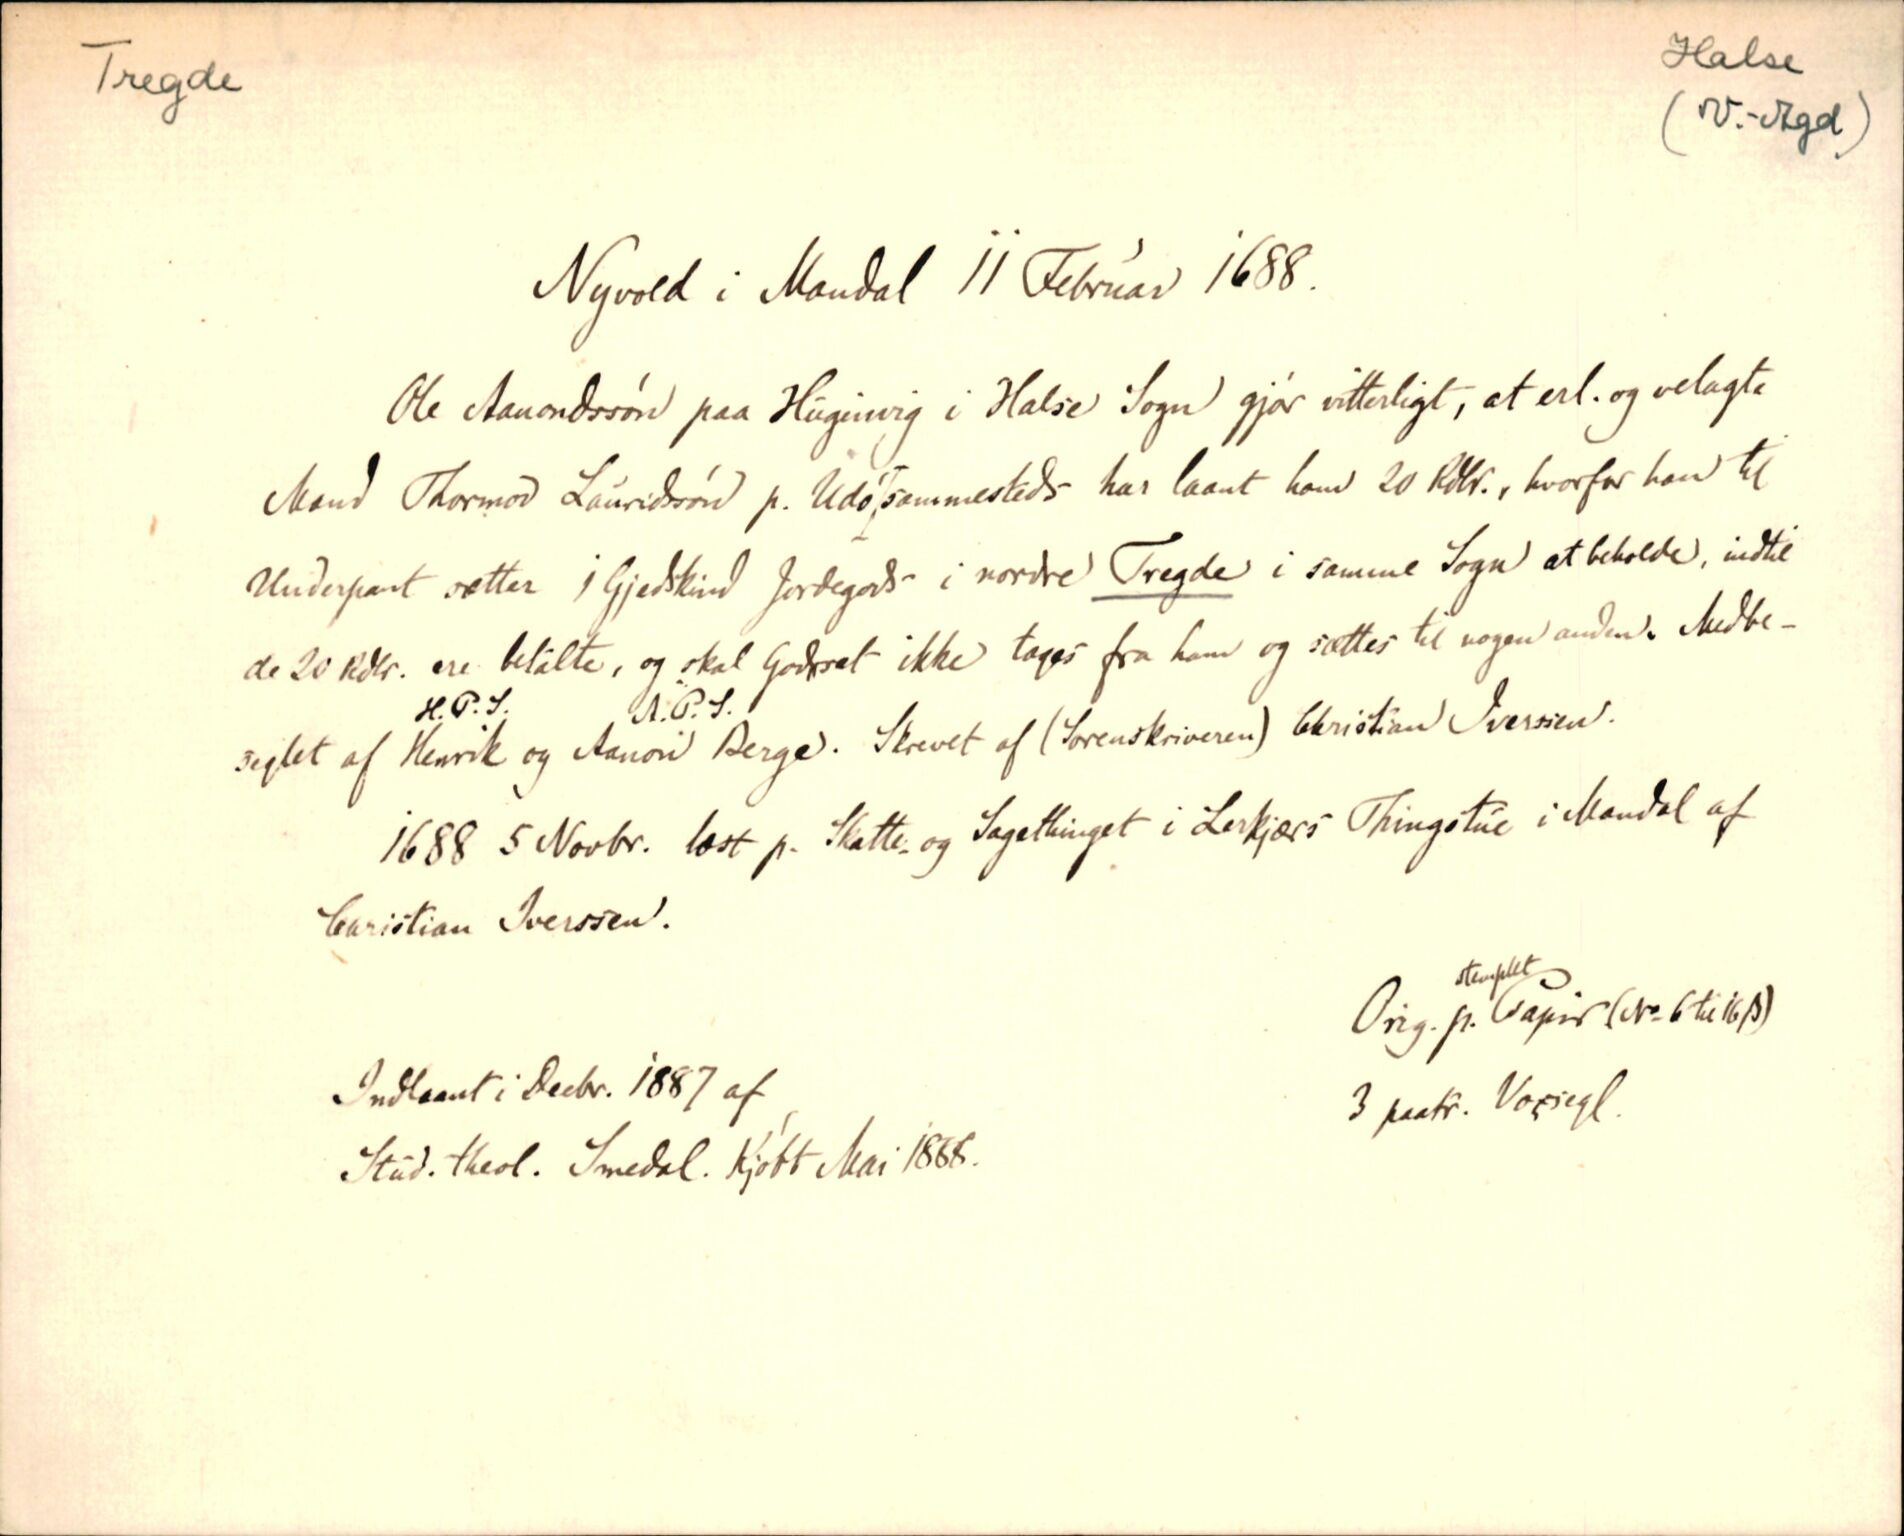 Tregde
Halse
(V.-Agd.)
Nyvold i Mandal 11 Februar 1688.
Ole Aanondssön paa Huginvig i Halse Sogn gjör vitterligt, at erl. og velagte
Mand Thormod Lauridssön p. Udö sammesteds har laant ham 20 Rdlr., hvorfor han til
Underpant sætter 1 Gjedskind Jordegods i nordre Tregde i samme Sogn at beholde, indtil
de 20 Rdlr. ere betalte, og skal Godset ikke tages fra ham og sættes til nogen anden. Medbe-
H. P. S. A. P. S.
seglet af Henrik og Aanon Berge. Skrevet af (Sorenskriveren) Christian Iverssen.
1688 5 Novbr. læst p. Skatte- og Sagethinget i Lerkjærs Thingstue i Mandal af
Christian Iverssen.
stemplet
Orig. p. Papir (No 6 til 16 β)
3 paatr. Voxsegl.
Indlaant i Decbr. 1887 af
Stud. theol. Smedal. Kjöbt Mai 1888.